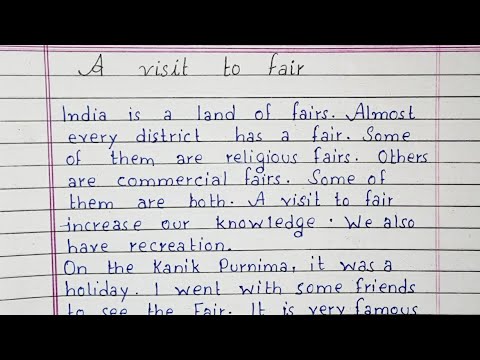 A visit to fair
India is a land of fairs. Almost
every district has a fair. Some
of them are religious fairs. Others
are commercial fairs. Some of
them are both. A visit to fair
increase our knowledge. We also
have recreation.
On the Kanik Purnima, it was a
holiday. I went with some friends
to see the Fair. It is very famous